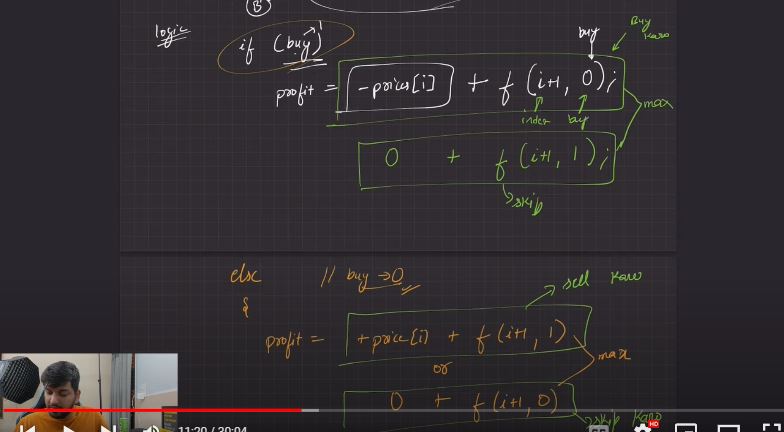 B
logic
if (buy) 1
buy
Buy Karo
profit = -prices[i] + f (i+1, 0);
index buy
max
0 + f (i+1, 1);
skip
else // buy → 0
{
sell Karo
profit = +price[i] + f (i+1, 1)
or
max
0 + f (i+1, 0)
skip Karo
11:20 / 30:04
HD